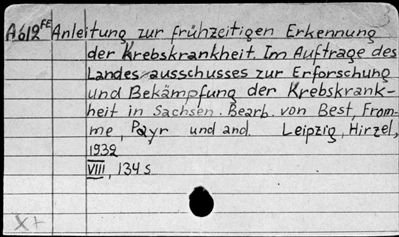 A612FE Anleitung zur frühzeitigen Erkennung
der Krebskrankheit. Im Auftrage des
Landesausschusses zur Erforschung
und Bekämpfung der Krebskrank-
heit in Sachsen. Bearb. von Best, From-
me, Payr und and. Leipzig, Hirzel,
1932
VIII, 134 S
X+